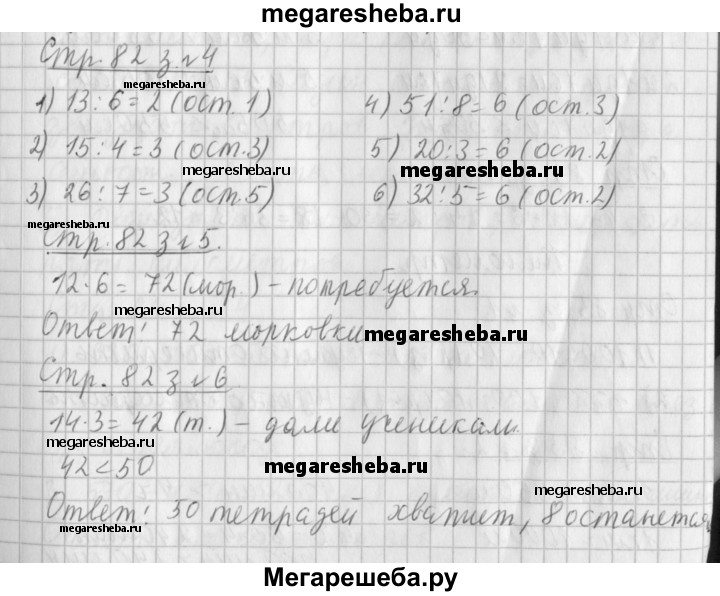 megaresheba.ru
Стр. 82 з. 4
megaresheba.ru
1) 13:6=2 (ост. 1) 4) 51:8=6 (ост. 3)
2) 15:4=3 (ост. 3) 5) 20:3=6 (ост. 2)
megaresheba.ru megaresheba.ru
3) 26:7=3 (ост. 5) 6) 32:5=6 (ост. 2)
megaresheba.ru
Стр. 82 з 5.
12·6= 72 (мор.) - потребуется.
megaresheba.ru
Ответ: 72 морковки
megaresheba.ru
Стр. 82 з 6
14·3=42 (т.) - дали ученикам.
megaresheba.ru
42<50
megaresheba.ru
megaresheba.ru
Ответ: 50 тетрадей хватит, 8 останется
megaresheba.ru
Мегарешеба.ру